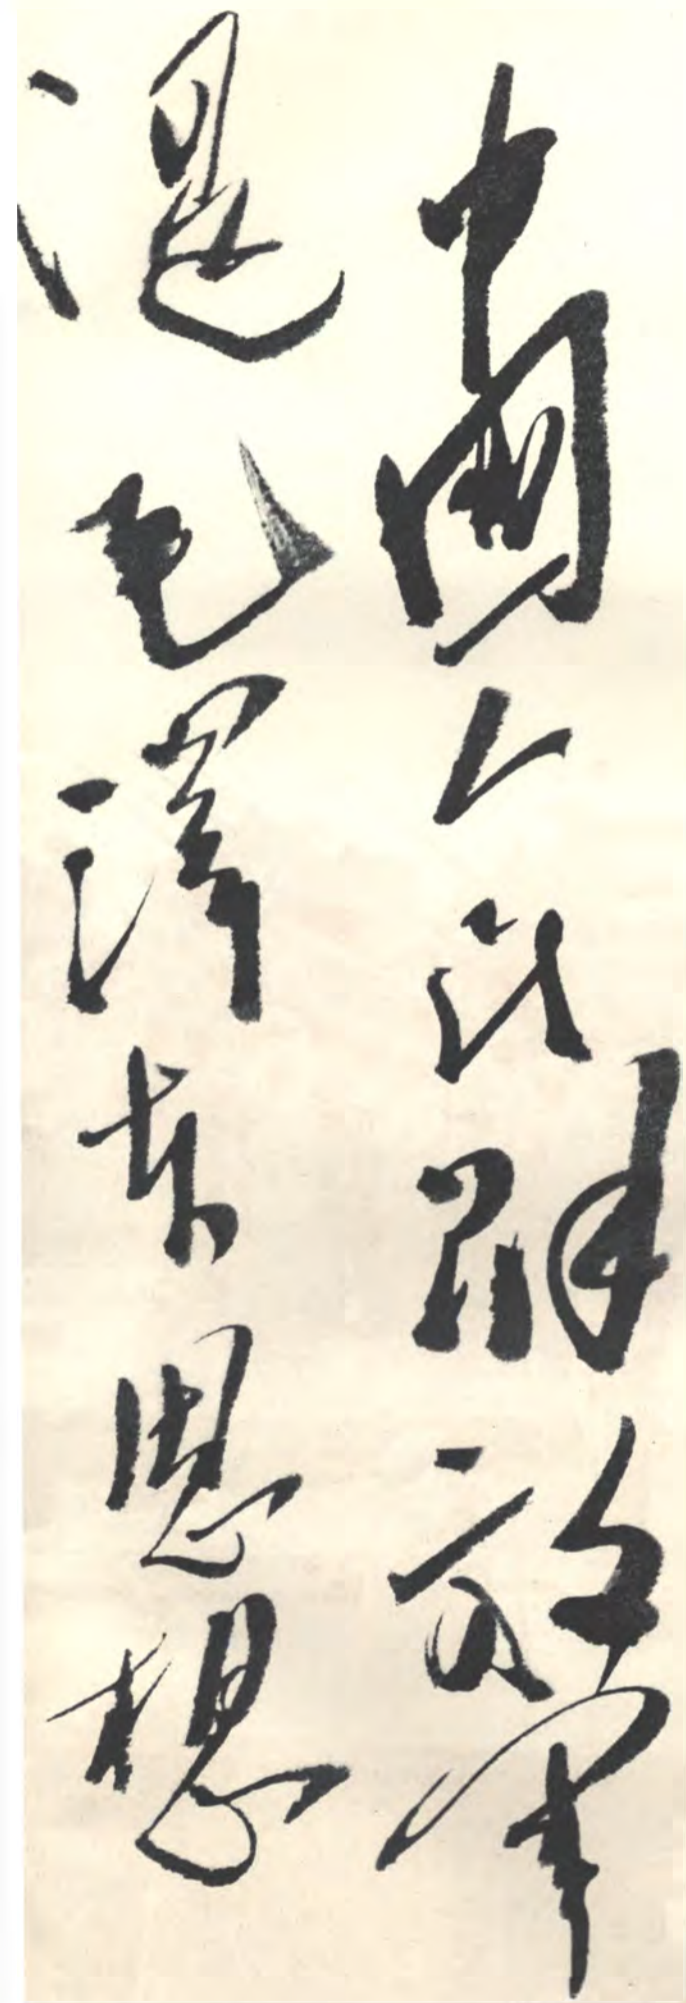 中國人民解放軍
是毛澤東思想